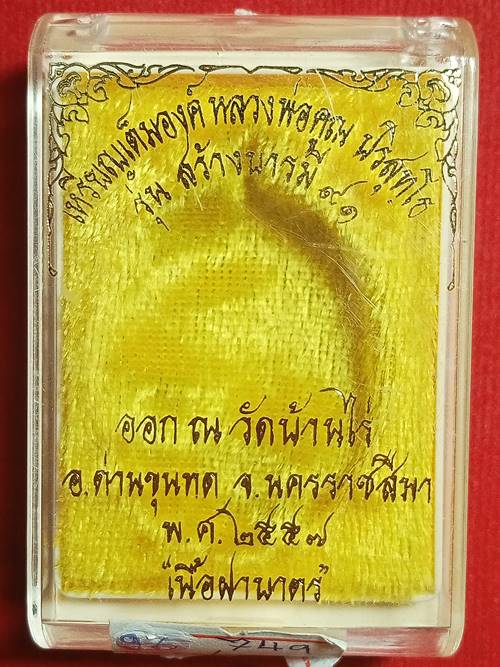 เหรียญเต็มองค์ หลวงพ่อคูณ ปริสุทฺโธ
รุ่น สร้างบารมี ๙๑
ออก ณ วัดบ้านไร่
อ.ด่านขุนทด จ.นครราชสีมา
พ.ศ.๒๕๕๗
"เนื้อฝาบาตร"